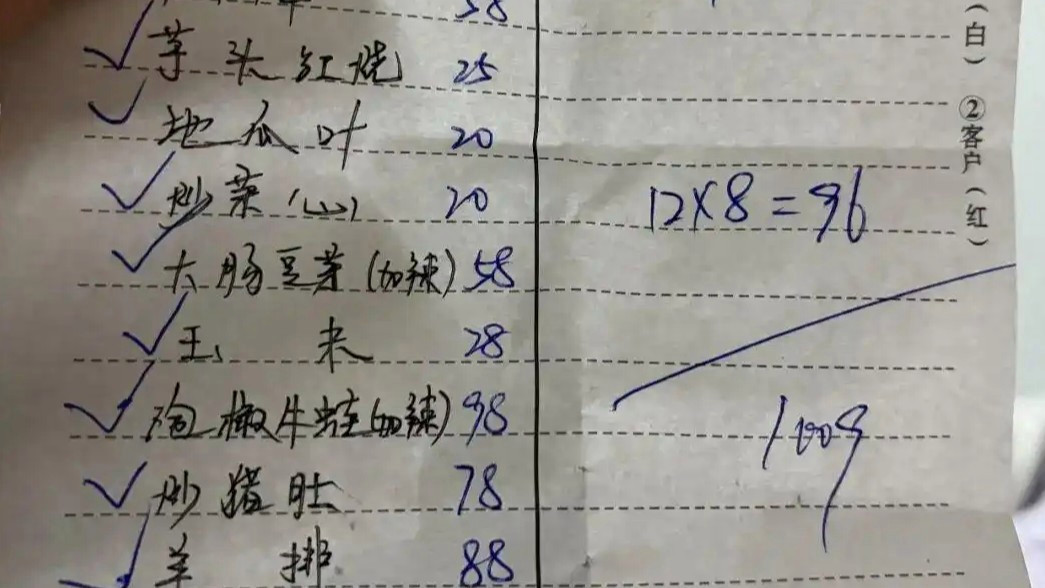 58
芋头红烧 25
地瓜叶 20
炒菜(心) 20
大肠豆芽(加辣) 58
玉米 28
泡椒牛蛙(加辣) 98
炒猪肚 78
羊排 88
12×8=96
1009
(白)
②客户(红)